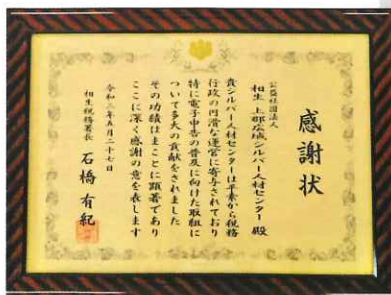 感謝状
公益社団法人
相生・上郡広域シルバー人材センター 殿
貴シルバー人材センターは平素から税務
行政の円滑な運営に寄与されており
特に電子申告の普及に向けた取組に
ついて多大の貢献をされました
その功績はまことに顕著であり
ここに深く感謝の意を表します
令和二年五月二十七日
相生税務署長 石橋有紀